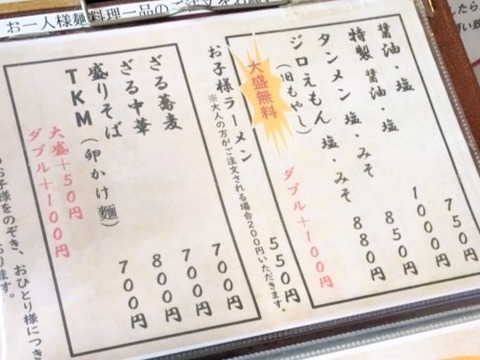 お一人様麺料理一品のご注文をお願
醤油・塩 750円
特製 醤油・塩 1000円
タンメン 塩・みそ 850円
ジロえもん 塩・みそ 880円
(旧もやし)
大盛無料
ダブル+100円
お子様ラーメン 550円
※大人の方がご注文される場合200円いただきます。
ざる蕎麦 700円
ざる中華 700円
盛りそば 800円
TKM(卵かけ麺) 700円
大盛+50円
ダブル+100円
お子様をのぞき、おひとり様につき
おります。